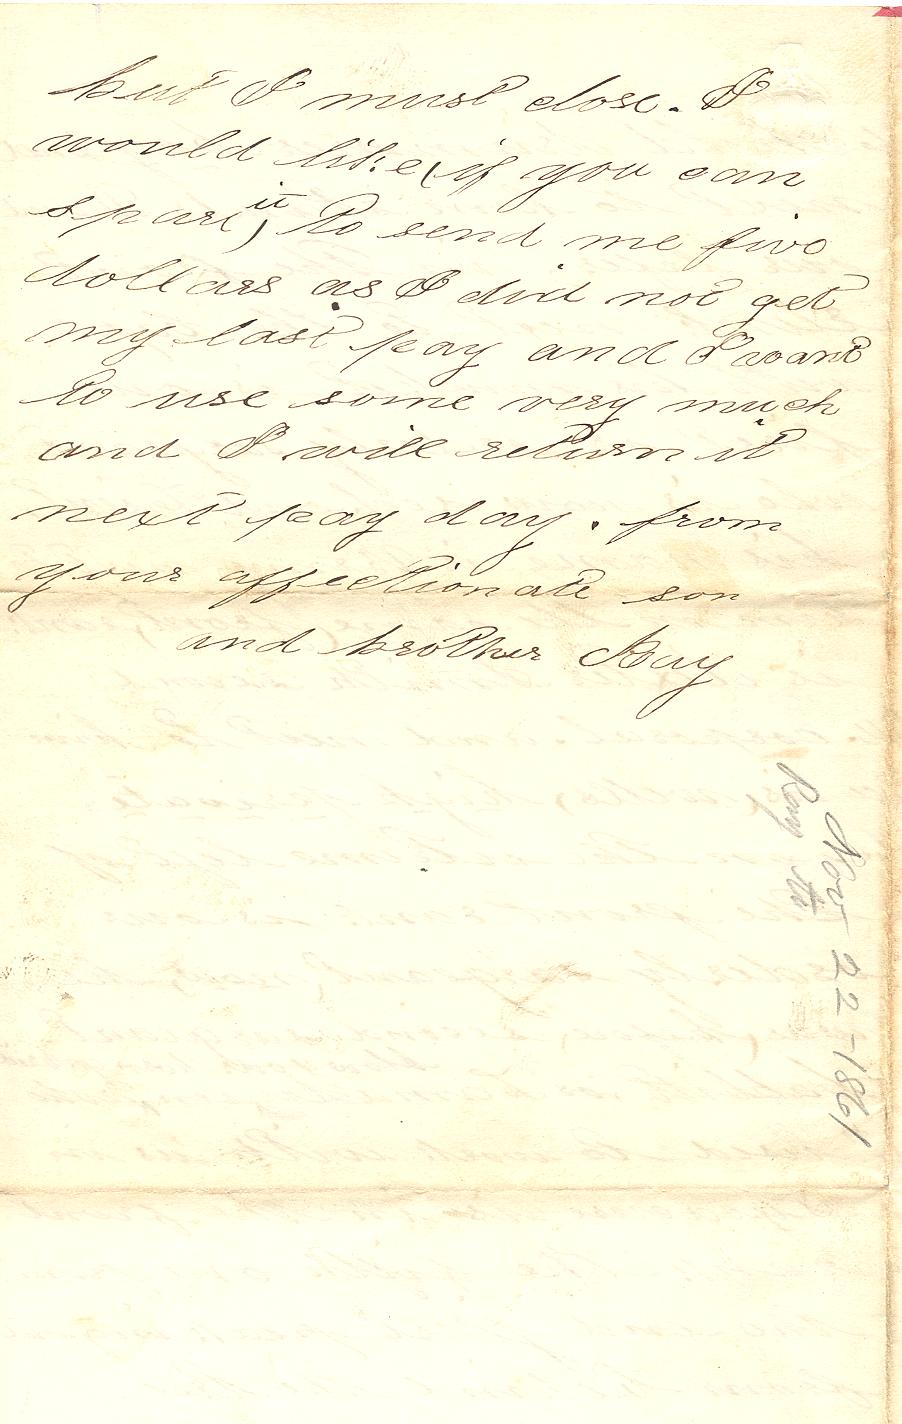 but I must close. I
would like (if you can
spare it) to send me five
dollars as I did not get
my last pay and I want
to use some very much
and I will return it
next pay day. from
your affectionate son
and brother Ray
Nov 22-1861
Ray